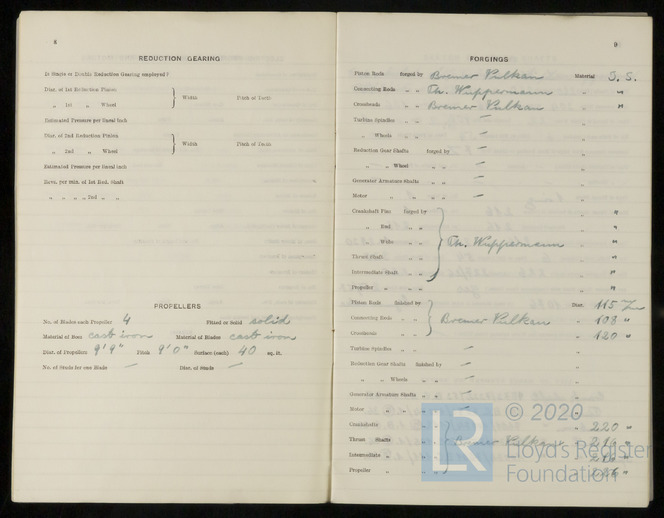 8
REDUCTION GEARING
Is Single or Double Reduction Gearing employed?
Diar. of 1st Reduction Pinion
„ 1st „ Wheel
Width Pitch of Teeth
Estimated Pressure per lineal inch
Diar. of 2nd Reduction Pinion
„ 2nd „ Wheel
Width Pitch of Teeth
Estimated Pressure per lineal inch
Revs. per min. of 1st Red. Shaft
„ „ „ „ 2nd „ „
PROPELLERS
No. of Blades each Propeller 4 Fitted or Solid solid
Material of Boss cast iron Material of Blades cast iron
Diar. of Propellers 9' 9" Pitch 9' 0" Surface (each) 40 sq. ft.
No. of Studs for one Blade — Diar. of Studs —
9
FORGINGS
Piston Rods forged by Bremer Vulkan Material S. S.
Connecting Rods „ „ Th. Wuppermann „ „
Crossheads „ „ Bremer Vulkan „ „
Turbine Spindles „ „ — „
„ Wheels „ „ — „
Reduction Gear Shafts forged by — „
„ „ Wheel „ „ — „
Generator Armature Shafts „ „ — „
Motor „ „ „ — „
Crankshaft Pins forged by „ „
„ Red „ „ „ „
„ Webs „ „ Th. Wuppermann „ „
Thrust Shaft „ „ „ „
Intermediate Shaft „ „ „ „
Propeller „ „ „ „ „
Piston Rods finished by Diar. 115
Connecting Rods „ „ Bremer Vulkan „ 108 „
Crossheads „ „ „ 120 „
Turbine Spindles „ „ —
Reduction Gear Shafts finished by —
„ „ Wheels „ „ —
Generator Armature Shafts „ „ —
Motor „ „ „ —
Crankshafts „ „ 220 „
Thrust Shafts „ Bremer Vulkan „
Intermediate „ „
Propeller „ „ „
LR
© 2020
Lloyd's Register
Foundation